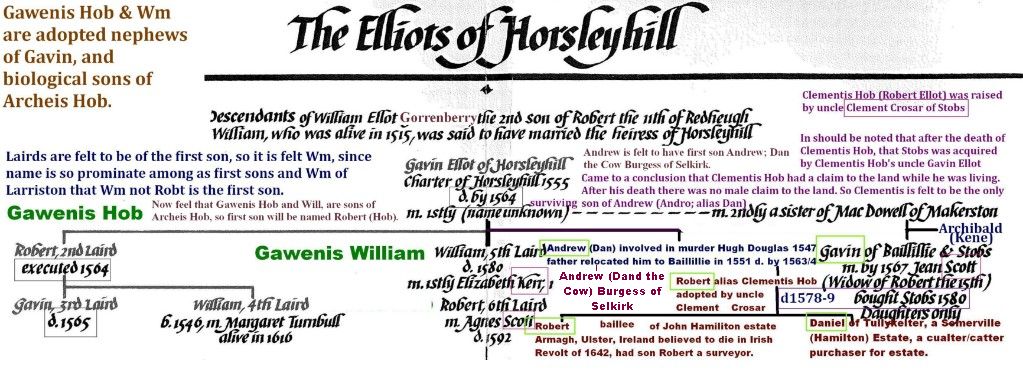 Gawenis Hob & Wm
are adopted nephews
of Gavin, and
biological sons of
Archeis Hob.
The Elliots of Horsleyhill
Descendants of William Ellot Gorrenberry the 2nd son of Robert the 11th of Redheugh
William, who was alive in 1515, was said to have married the heiress of Horsleyhill
Clementis Hob (Robert Ellot) was raised
by uncle Clement Crosar of Stobs
In should be noted that after the death of
Clementis Hob, that Stobs was acquired
by Clementis Hob's uncle Gavin Ellot
Lairds are felt to be of the first son, so it is felt Wm, since
name is so prominate among as first sons and Wm of
Larriston that Wm not Robt is the first son.
Gavin Ellot of Horsleyhill
Charter of Horsleyhill 1555
d. by 1564
m. 1stly (name unknown) – – – – – – – – – – – m. 2ndly a sister of Mac Dowell of Makerston
Andrew is felt to have first son Andrew; Dan
the Cow Burgess of Selkirk.
Came to a conclusion that Clementis Hob had a claim to the land while he was living.
After his death there was no male claim to the land. So Clementis is felt to be the only
surviving son of Andrew (Andro; alias Dan)
Gawenis Hob
Now feel that Gawenis Hob and Will, are sons of
Archeis Hob, so first son will be named Robert (Hob).
Archibald
(Kene)
Robert, 2nd Laird
executed 1564
Gavin, 3rd Laird
d. 1565
William, 4th Laird
b. 1546, m. Margaret Turnbull
alive in 1616
Gawenis William
William, 5th Laird
d. 1580
m. 1stly Elizabeth Kerr,
Robert, 6th Laird
m. Agnes Scott
d. 1592
Andrew (Dan) involved in murder Hugh Douglas 1547
father relocated him to Baillillie in 1551 d. by 1563/4
Andrew (Dand the
Cow) Burgess of
Selkirk
Robert alias Clementis Hob
adopted by uncle
Clement Crosar
Gavin of Baillillie & Stobs
m. by 1567 Jean Scott
(Widow of Robert the 15th)
d1578-9 bought Stobs 1580
Daughters only
Robert baillee of John Hamiliton estate
Armagh, Ulster, Ireland believed to die in Irish
Revolt of 1642, had son Robert a surveyor.
Daniel of Tullykelter, a Somerville
(Hamilton) Estate, a cualter/catter
purchaser for estate.